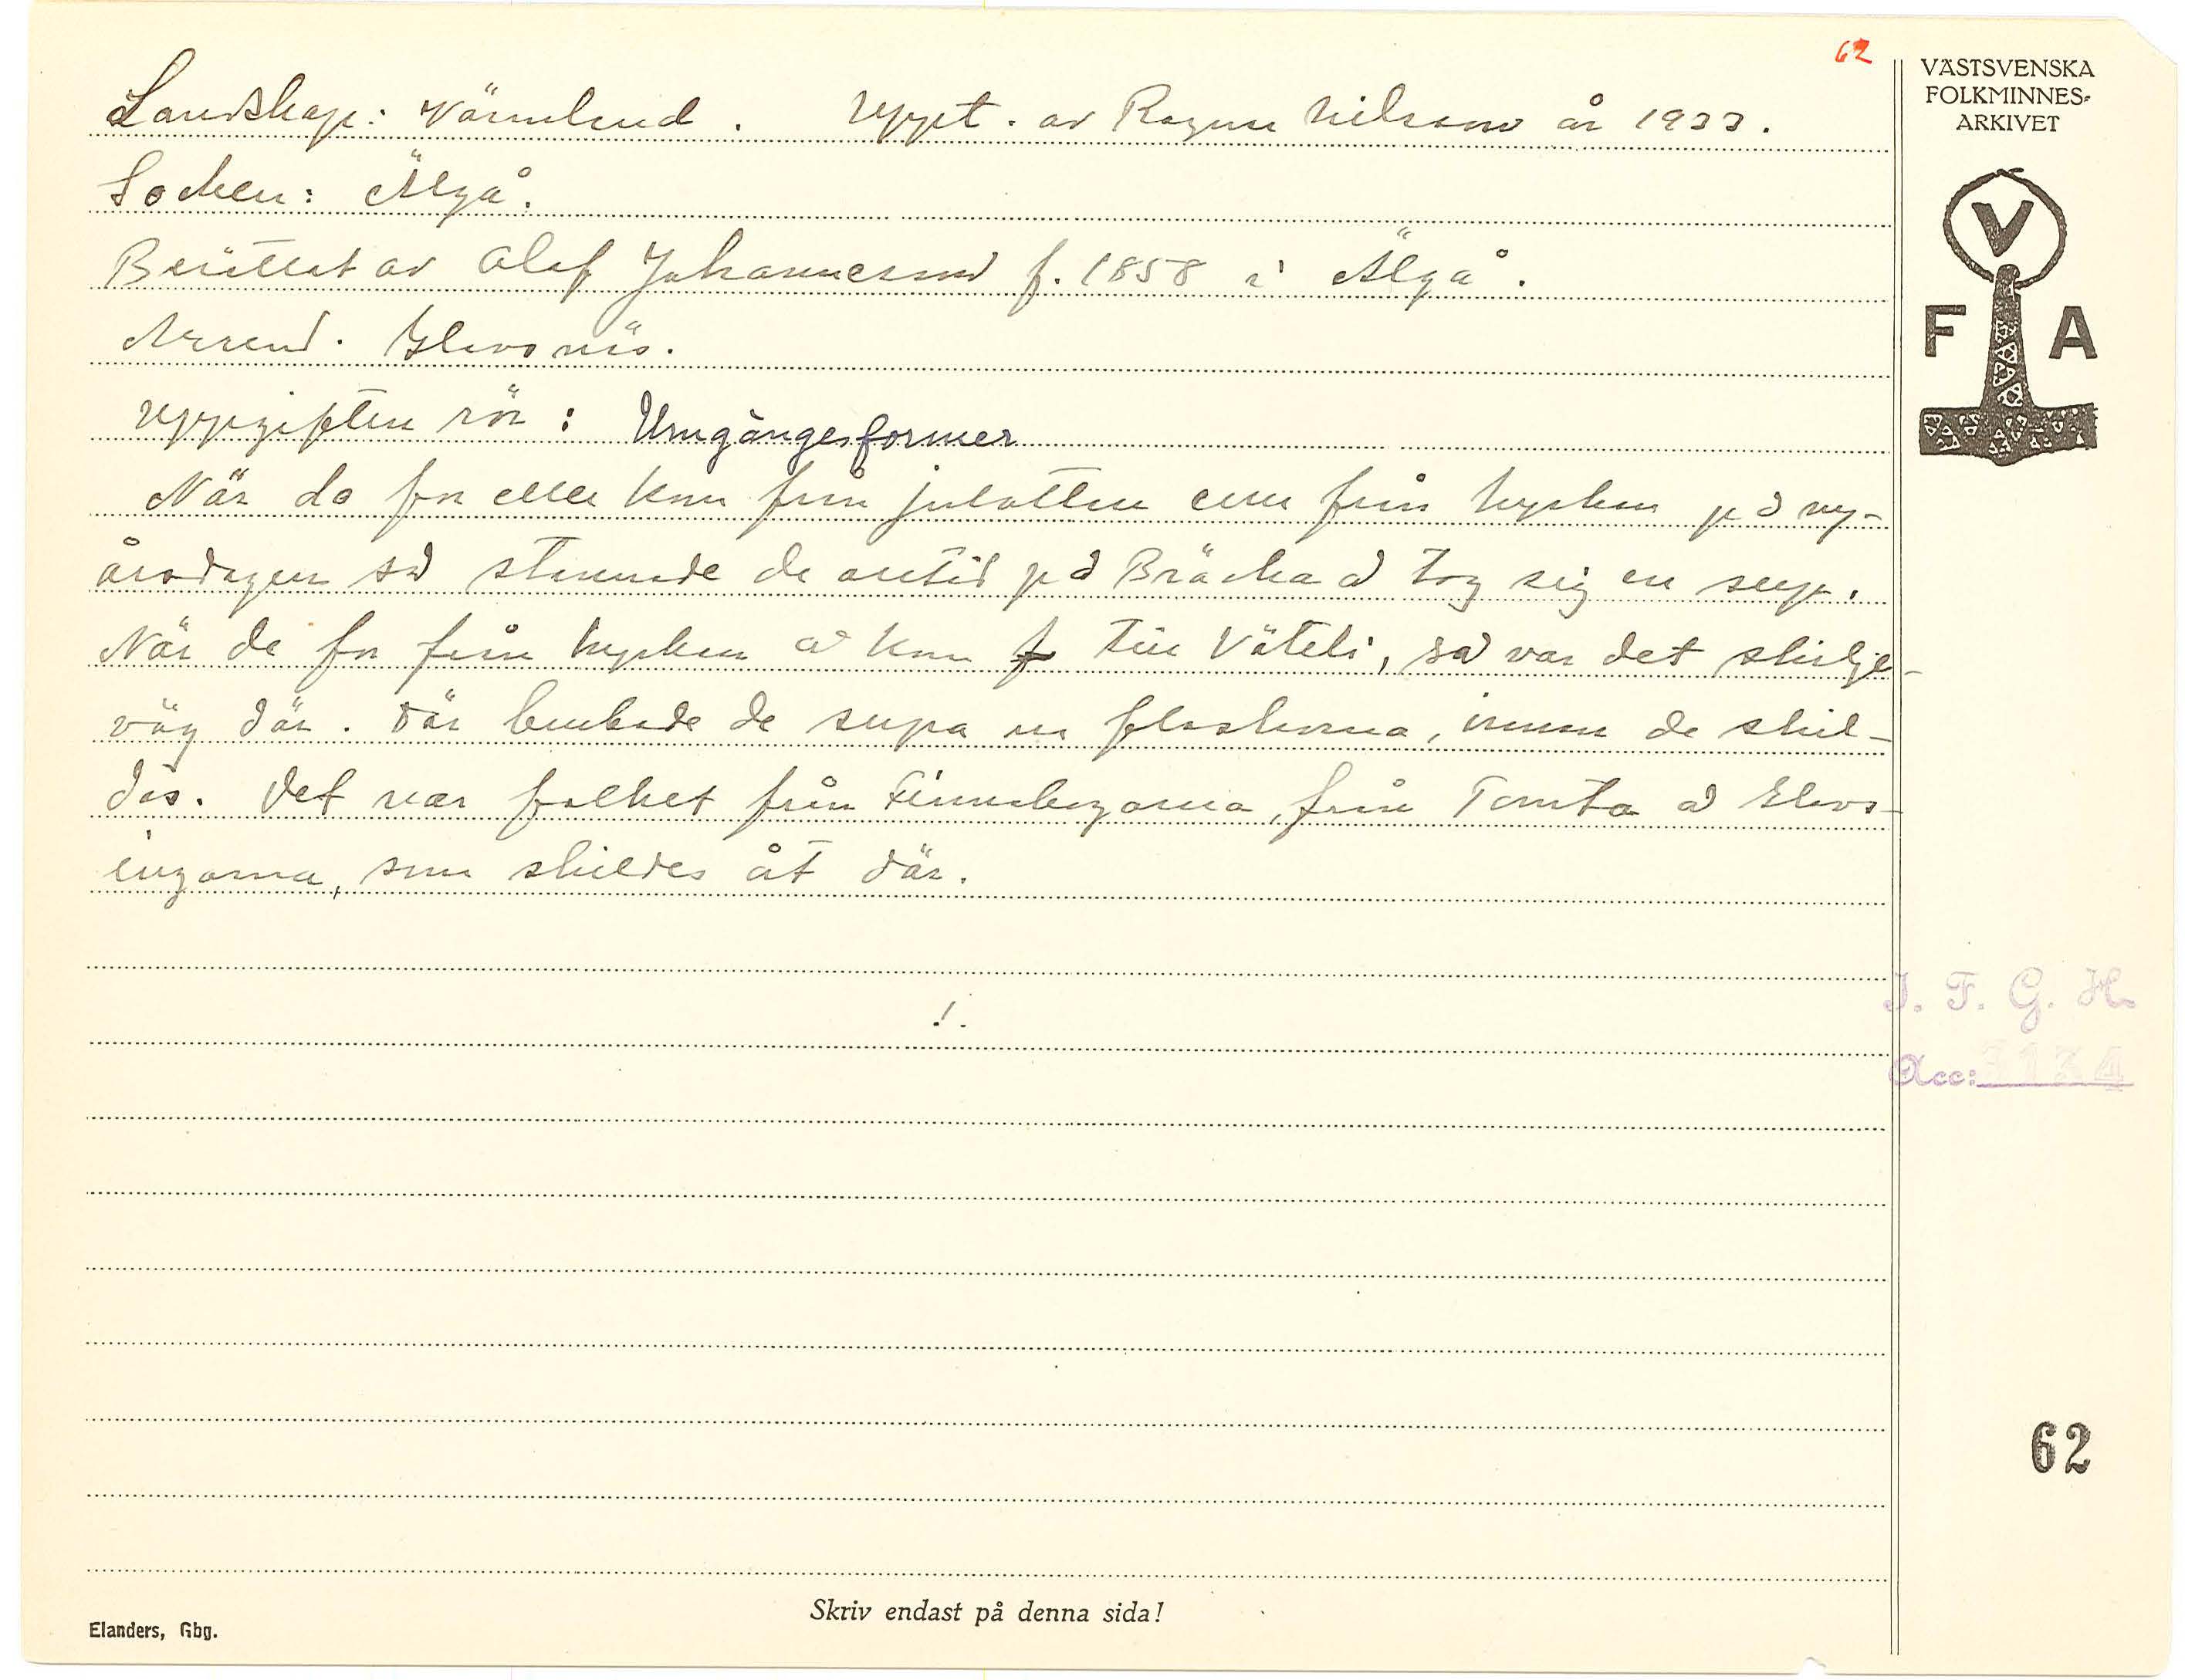 62
Landskap: Värmland. Uppt. av Ragnar Nilsson år 1933.
Socken: Älgå.
Berättat av Olof Johannesson f. 1858 i Älgå.
Arrend.
Uppgiften rör: Umgängesformer
När de for eller kom från julottan eller från kyrkan på ny-
årsdagen så stannade de alltid på Bräcka å tog sig en sup.
När de for från kyrkan å kom till Väteli, så var det skilje-
väg där. Där brukade de supa ur flaskorna, innan de skil-
das. Det var folket från Finnskogarna, från Tomta å Elovs-
ingarna, som skildes åt där.
!.
Skriv endast på denna sida!
Elanders, Gbg.
VÄSTSVENSKA
FOLKMINNES-
ARKIVET
V
F A
I. F. G. H.
Acc: 3134
62